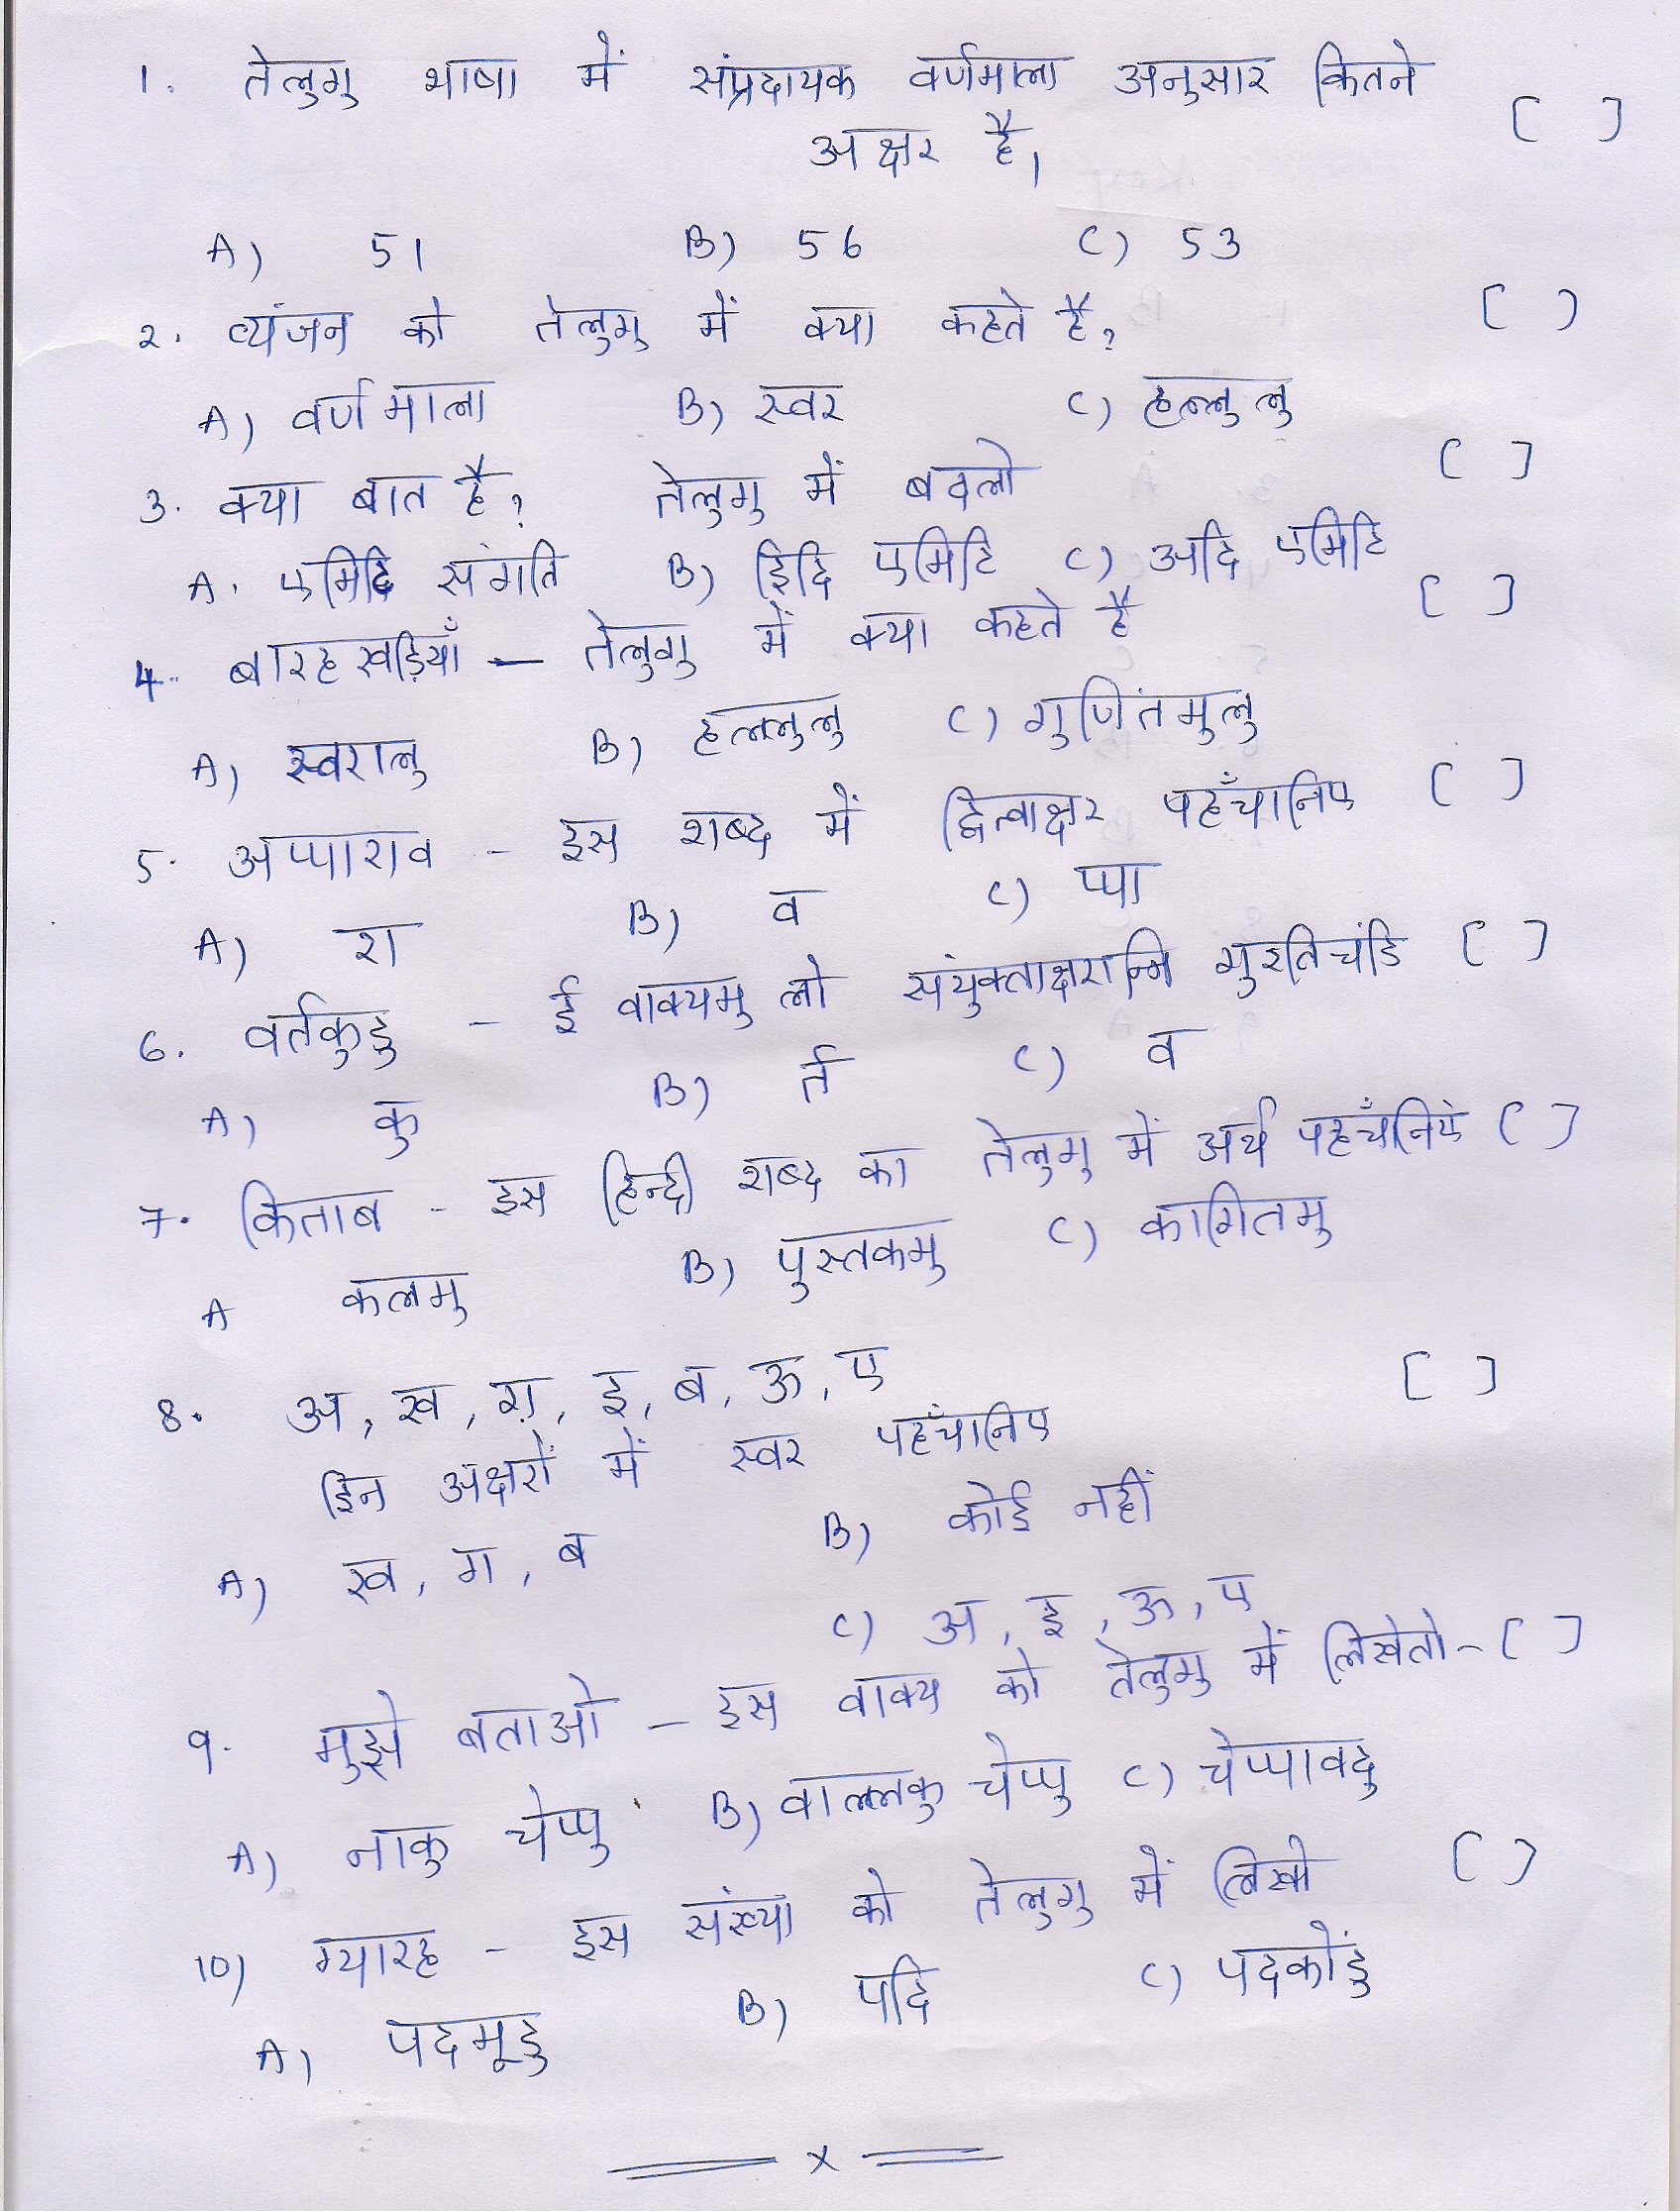 1. तेलुगु भाषा में संप्रदायक वर्णमाला अनुसार कितने [ ]
अक्षर है।
A) 51 B) 56 C) 53
2. व्यंजन को तेलुगु में क्या कहते है? [ ]
A) वर्णमाला B) स्वर C) हल्लुलु
3. क्या बात है? तेलुगु में बदलो [ ]
A. एमिटि संगति B) इिदि एमिटि C) अदि एमिटि
4. बारहखड़ियाँ – तेलुगु में क्या कहते है [ ]
A) स्वरालु B) हल्लुलु C) गुणिंतमुलु
5. अप्पाराव – इस शब्द में द्वित्वाक्षर पहँचानिए [ ]
A) रा B) व C) प्पा
6. वर्तकुडु – ई वाक्यमु लो संयुक्ताक्षरान्नि गुरतिचंडि [ ]
A) कु B) र्त C) व
7. किताब – इस हिन्दी शब्द का तेलुगु में अर्थ पहँचनिऐ [ ]
A कलमु B) पुस्तकमु C) कागितमु
8. अ, ख, ग़, इ, ब, ऊ, ए [ ]
इिन अक्षरों में स्वर पहँचानिए
A) ख, ग, ब B) कोई नहीं
C) अ, इ, ऊ, ए
9. मुझे बताओ – इस वाक्य को तेलुगु में लिखेतो – [ ]
A) नाकु चेप्पु B) वाल्लकु चेप्पु C) चेप्पावदु
10) ग्यारह – इस संख्या को तेलुगु में लिखो [ ]
A) पदमूडु B) पदि C) पदकोंडु
x